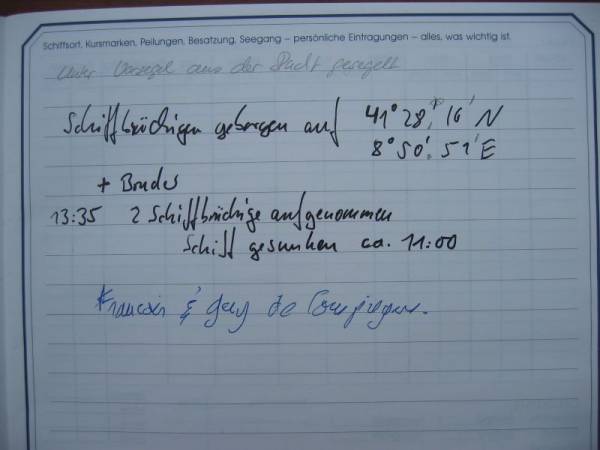 Schiffsort, Kursmarken, Peilungen, Besatzung, Seegang – persönliche Eintragungen – alles, was wichtig ist.
Unter Vorsegel aus der Stadt gesegelt
Schiffbrüchigen geborgen auf 41° 28,' 16' N
8° 50,' 51' E
+ Bruder
13:35 2 Schiffbrüchige aufgenommen
Schiff gesunken ca. 11:00
& de